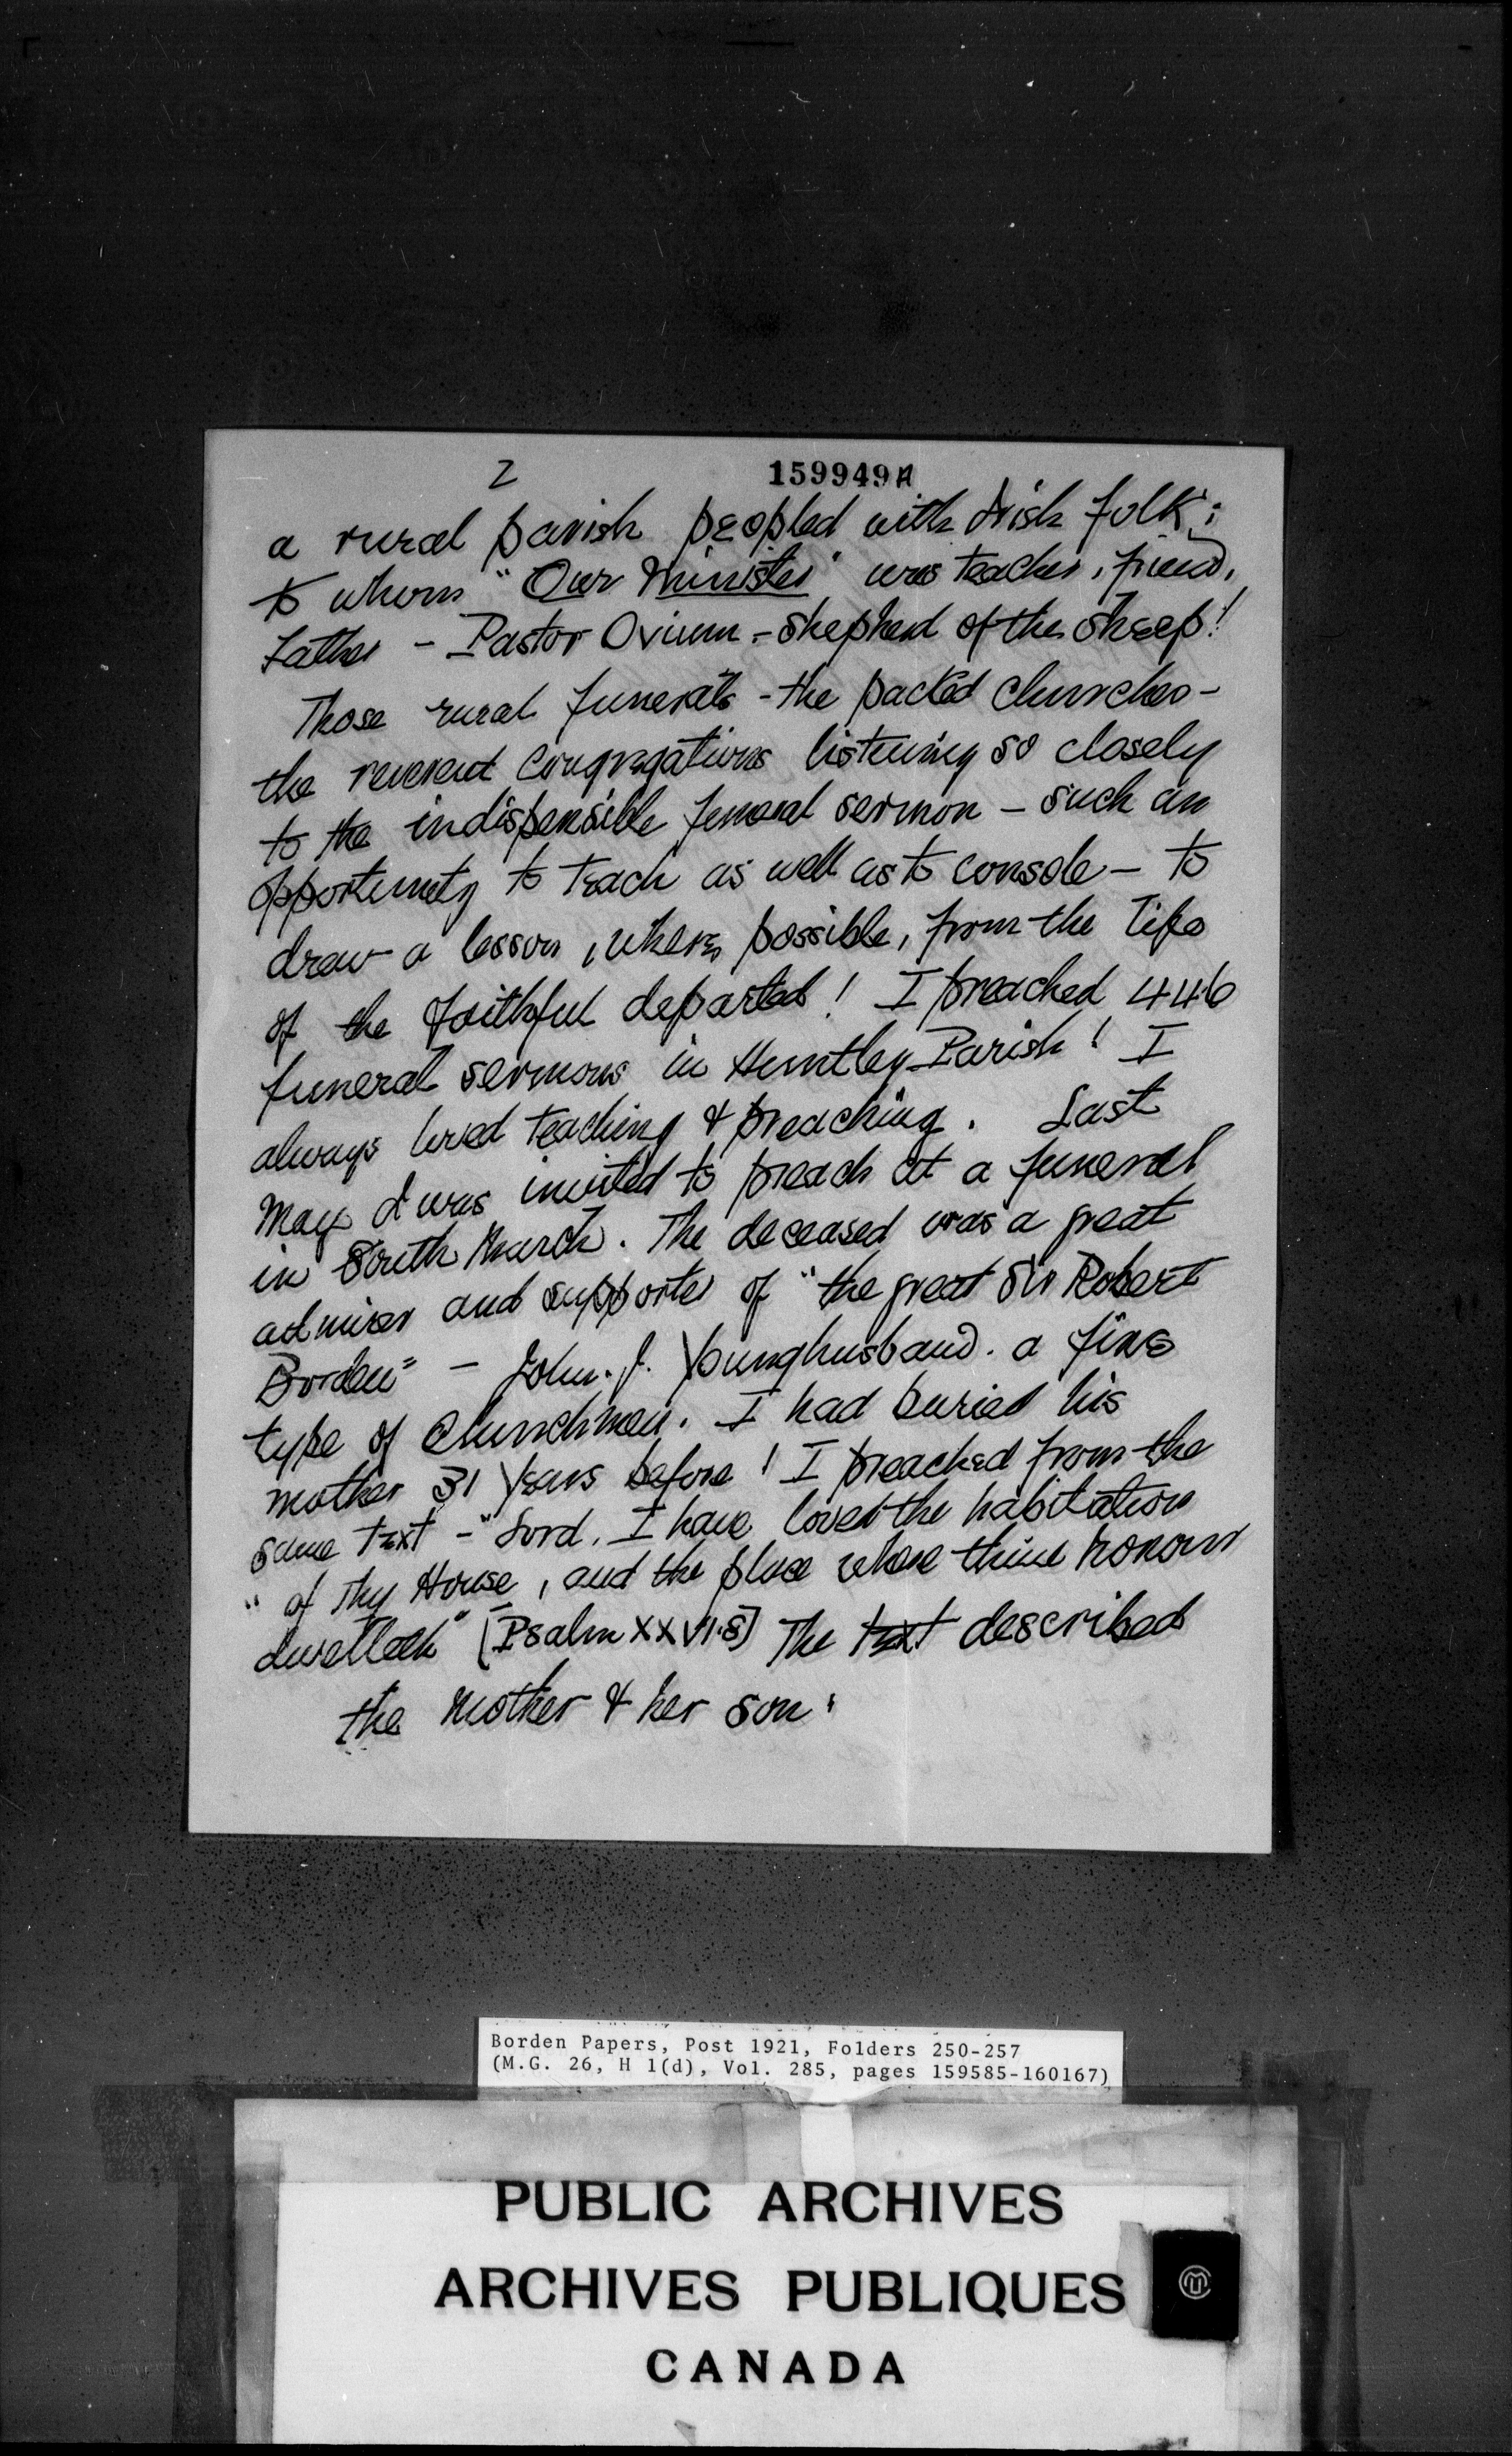 2
159949A
a rural parish peopled with Irish folk;
to whom "Our Minister" was teacher, friend,
Father - Pastor Ovium - Shepherd of the Sheep!
Those rural funerals - the packed churches -
the reverent congregations listening so closely
to the indispensible funeral sermon - such an
opportunity to teach as well as to console - to
draw a lesson, where possible, from the life
of the faithful departed! I preached 446
funeral sermons in Huntley Parish! I
always loved teaching & preaching. Last
May I was invited to preach at a funeral
in South March. The deceased was a great
admirer and supporter of "the great Sir Robert
Borden" - John. J. Younghusband. a fine
type of Churchman. I had buried his
mother 31 years before! I preached from the
same text - "Lord, I have loved the habitation
" of Thy House, and the place where thine honour
dwelleth" [Psalm XXVI.8] The text described
the mother & her son.
Borden Papers, Post 1921, Folders 250-257
(M.G. 26, H 1(d), Vol. 285, pages 159585-160167)
PUBLIC ARCHIVES
ARCHIVES PUBLIQUES
CANADA